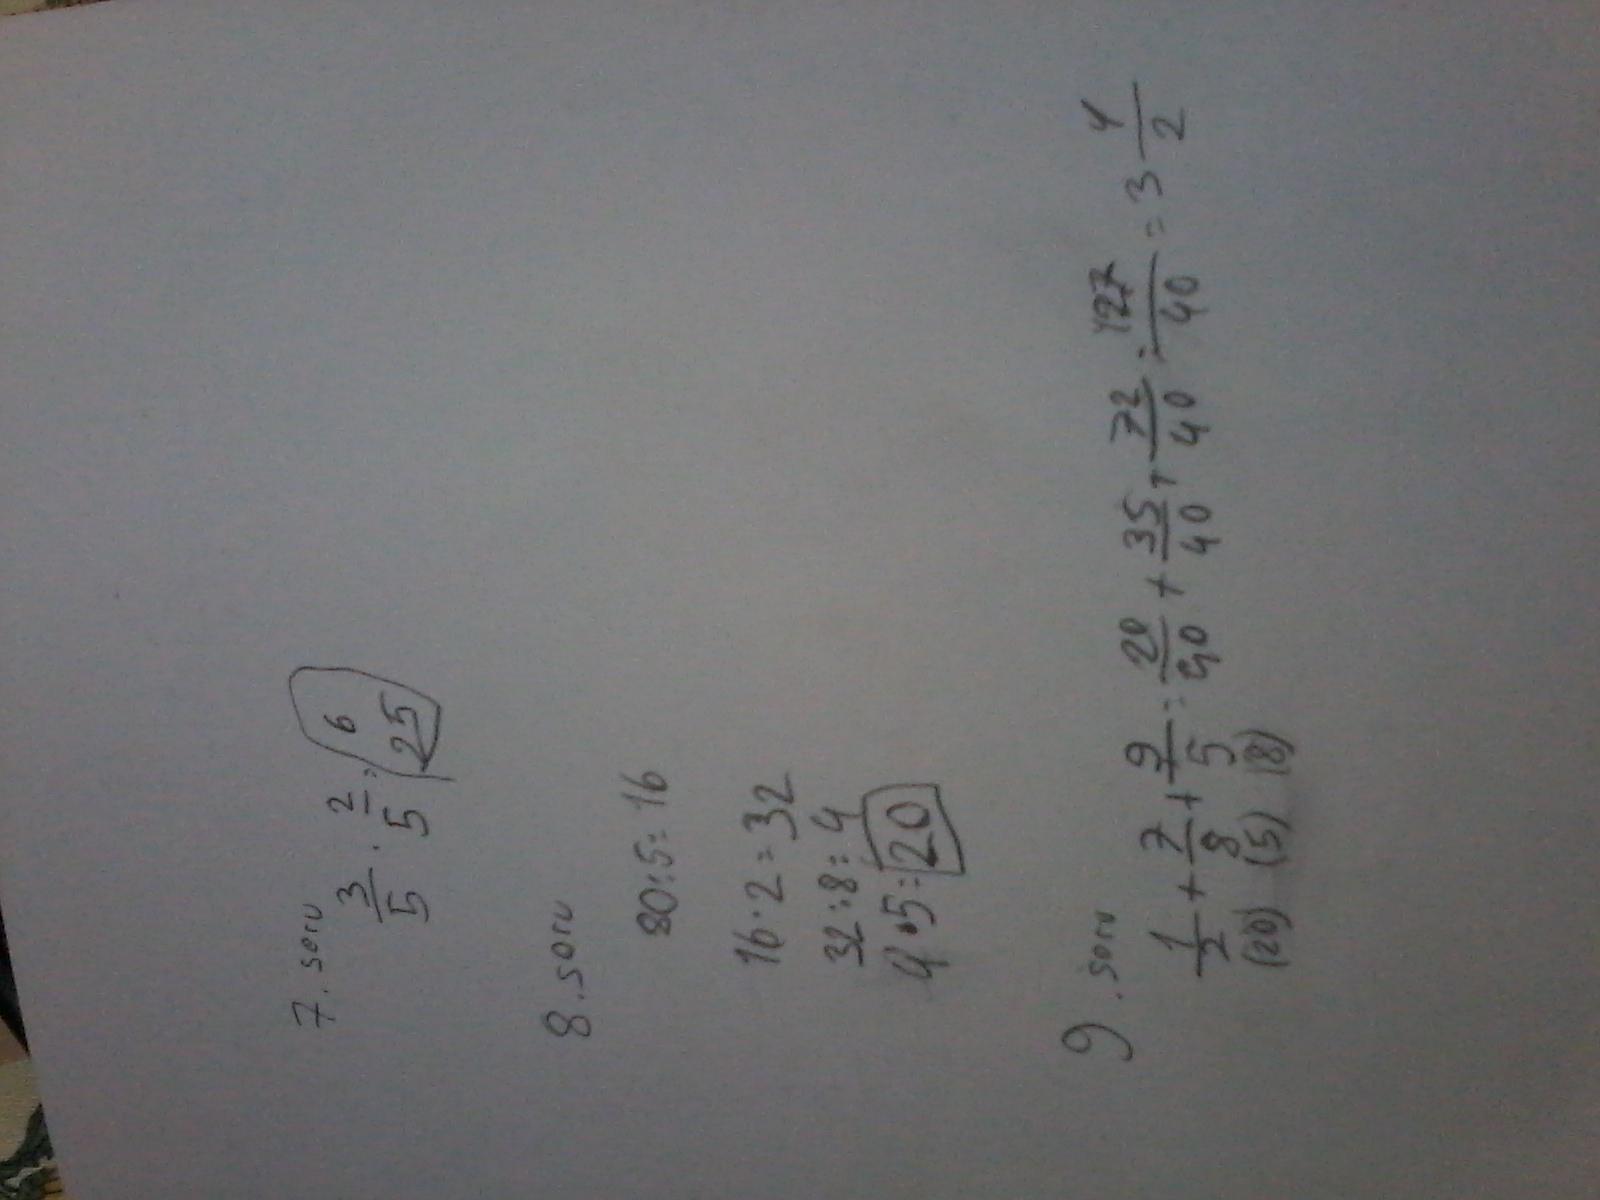 7. soru
3/5 · 2/5 = 6/25
8. soru
80:5=16
16·2=32
32:8=4
4·5=20
9. soru
1/2 + 7/8 + 9/5 = 20/40 + 35/40 + 72/40 = 127/40 = 3 1/2
(20) (5) (8)